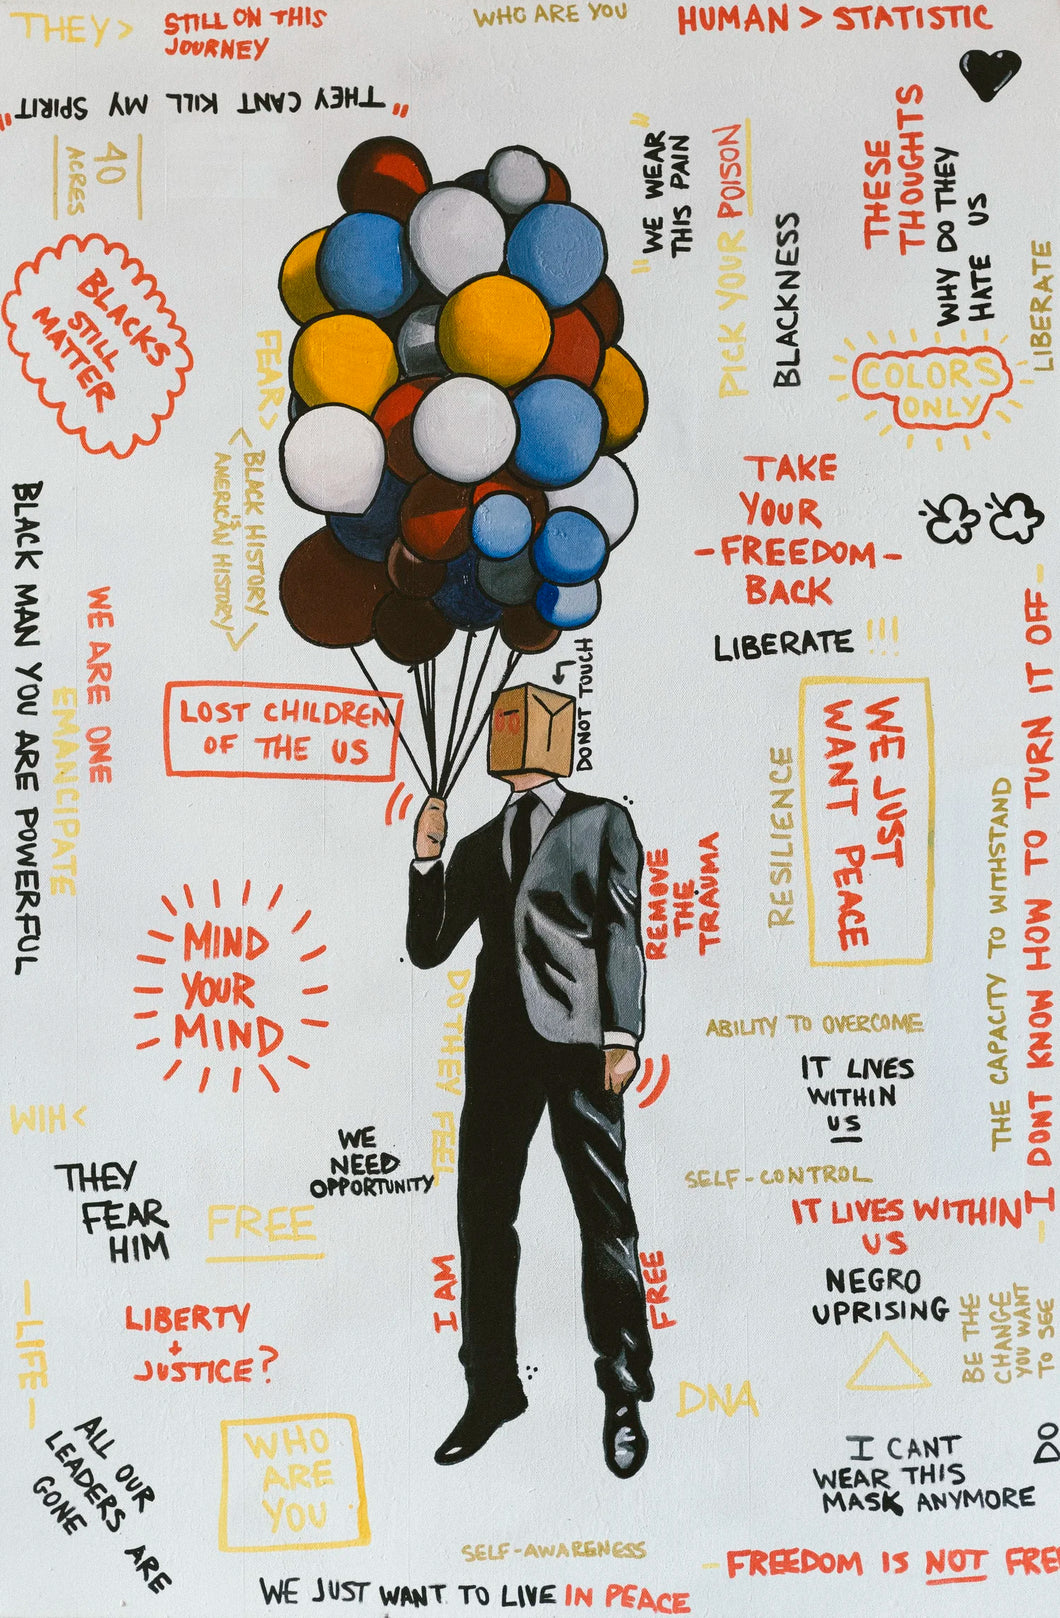 THEY>
STILL ON THIS
JOURNEY
WHO ARE YOU
HUMAN > STATISTIC
"THEY CANT KILL MY SPIRIT"
40
ACRES
"WE WEAR
THIS PAIN"
PICK YOUR POISON
BLACKNESS
THESE
THOUGHTS
WHY DO THEY
HATE US
LIBERATE
BLACKS
STILL
MATTER
FEAR>
COLORS
ONLY
<BLACK HISTORY
IS
AMERICAN HISTORY>
TAKE
YOUR
-FREEDOM-
BACK
LIBERATE !!!
BLACK MAN YOU ARE POWERFUL
WE ARE ONE
EMANCIPATE
LOST CHILDREN
OF THE US
DO NOT TOUCH
WE JUST
WANT PEACE
RESILIENCE
THE CAPACITY TO WITHSTAND
-I DONT KNOW HOW TO TURN IT OFF-
REMOVE
THE
TRAUMA
MIND
YOUR
MIND
DO THEY FEEL
ABILITY TO OVERCOME
IT LIVES
WITHIN
US
HIM<
THEY
FEAR
HIM
WE
NEED
OPPORTUNITY
FREE
SELF-CONTROL
IT LIVES WITHIN
US
I AM
FREE
NEGRO
UPRISING
BE THE
CHANGE
YOU WANT
TO SEE
-LIFE-
LIBERTY
+
JUSTICE?
DNA
ALL OUR
LEADERS ARE
GONE
WHO
ARE
YOU
I CANT
WEAR THIS
MASK ANYMORE
DO
SELF-AWARENESS
-FREEDOM IS NOT FREE
WE JUST WANT TO LIVE IN PEACE